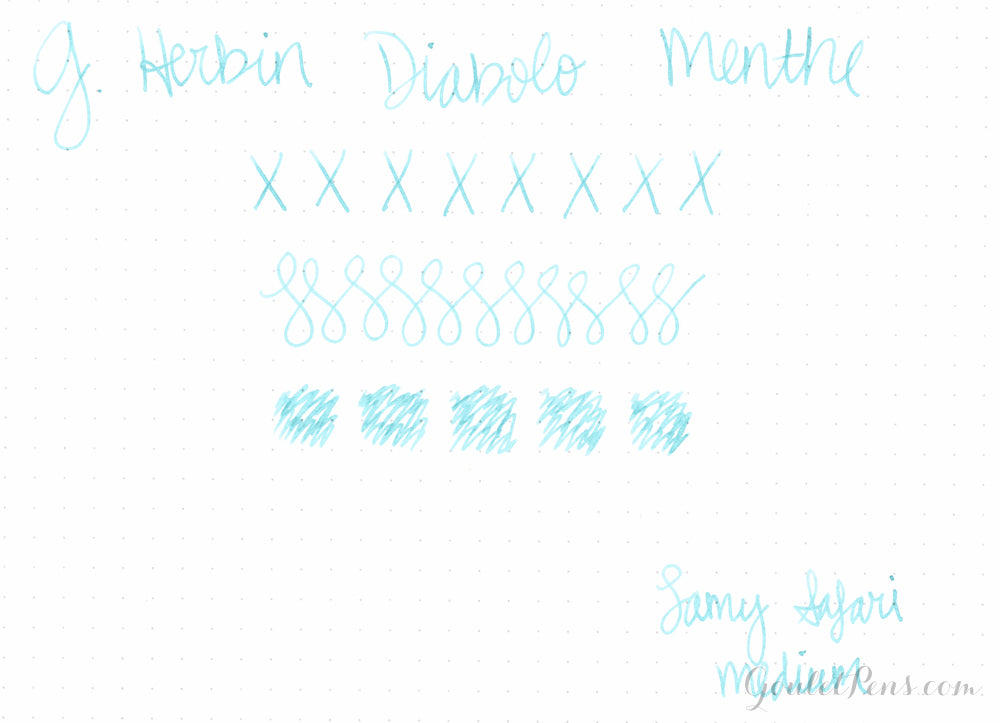 J. Herbin Diabolo Menthe
X X X X X X X X
Lamy Safari
medium
GouletPens.com